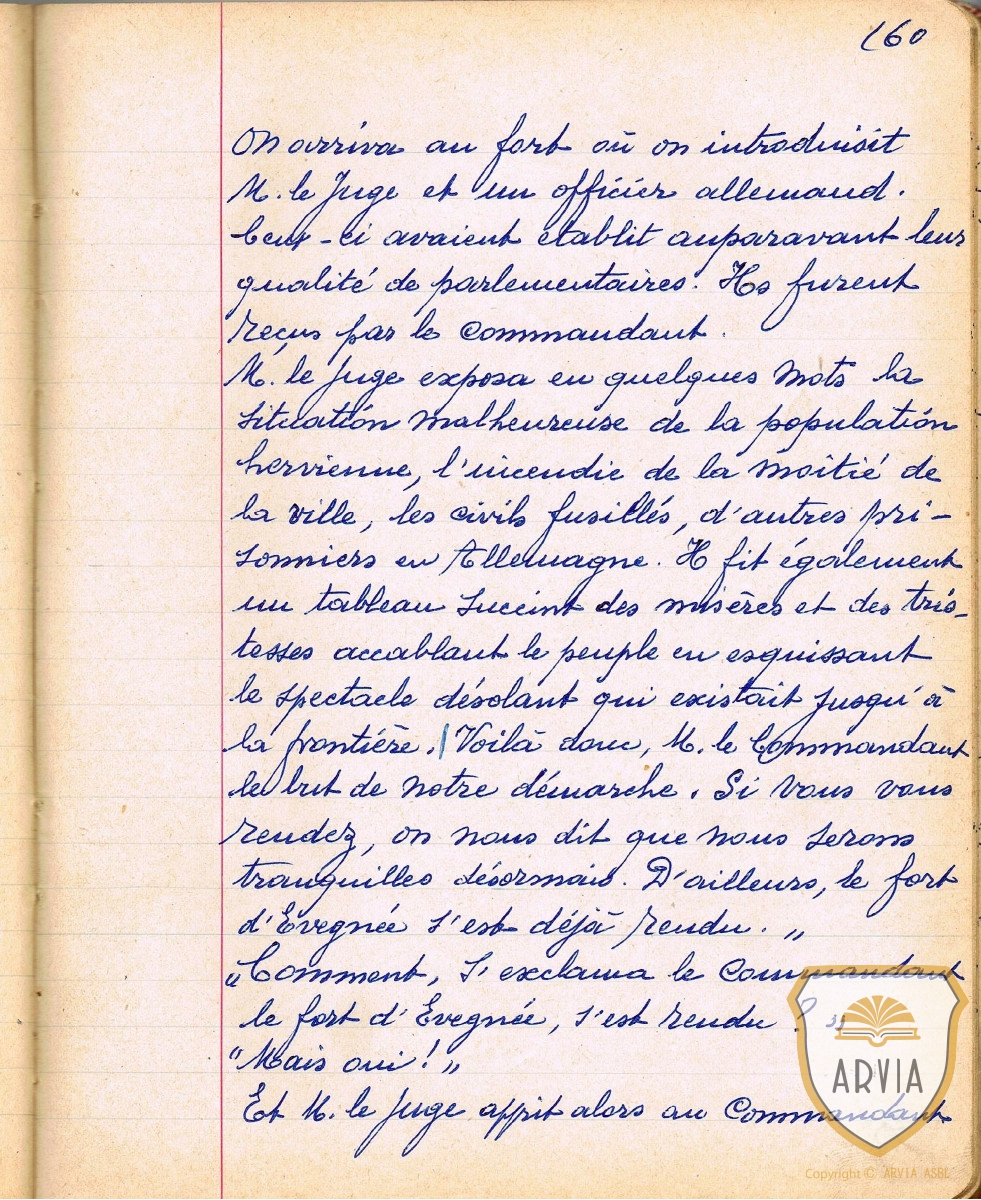 160
On arriva au fort où on introduisit
M. le Juge et un officier allemand.
Ceux-ci avaient établit auparavant leur
qualité de parlementaires. Ils furent
reçus par le Commandant.
M. le Juge exposa en quelques mots la
situation malheureuse de la population
hervienne, l'incendie de la moitié de
la ville, les civils fusillés, d'autres pri-
sonniers en Allemagne. Il fit également
un tableau succint des misères et des tris-
tesses accablant le peuple en esquissant
le spectacle désolant qui existait jusqu'à
la frontière. Voilà donc, M. le Commandant
le but de notre démarche. Si vous vous
rendez, on nous dit que nous serons
tranquilles désormais. D'ailleurs, le fort
d'Evegnée s'est déjà rendu. "
"Comment, s'exclama le Commandant
le fort d'Evegnée, s'est rendu ? "
"Mais oui ! "
Et M. le Juge apprit alors au Commandant
ARVIA
Copyright © ARVIA ASBL